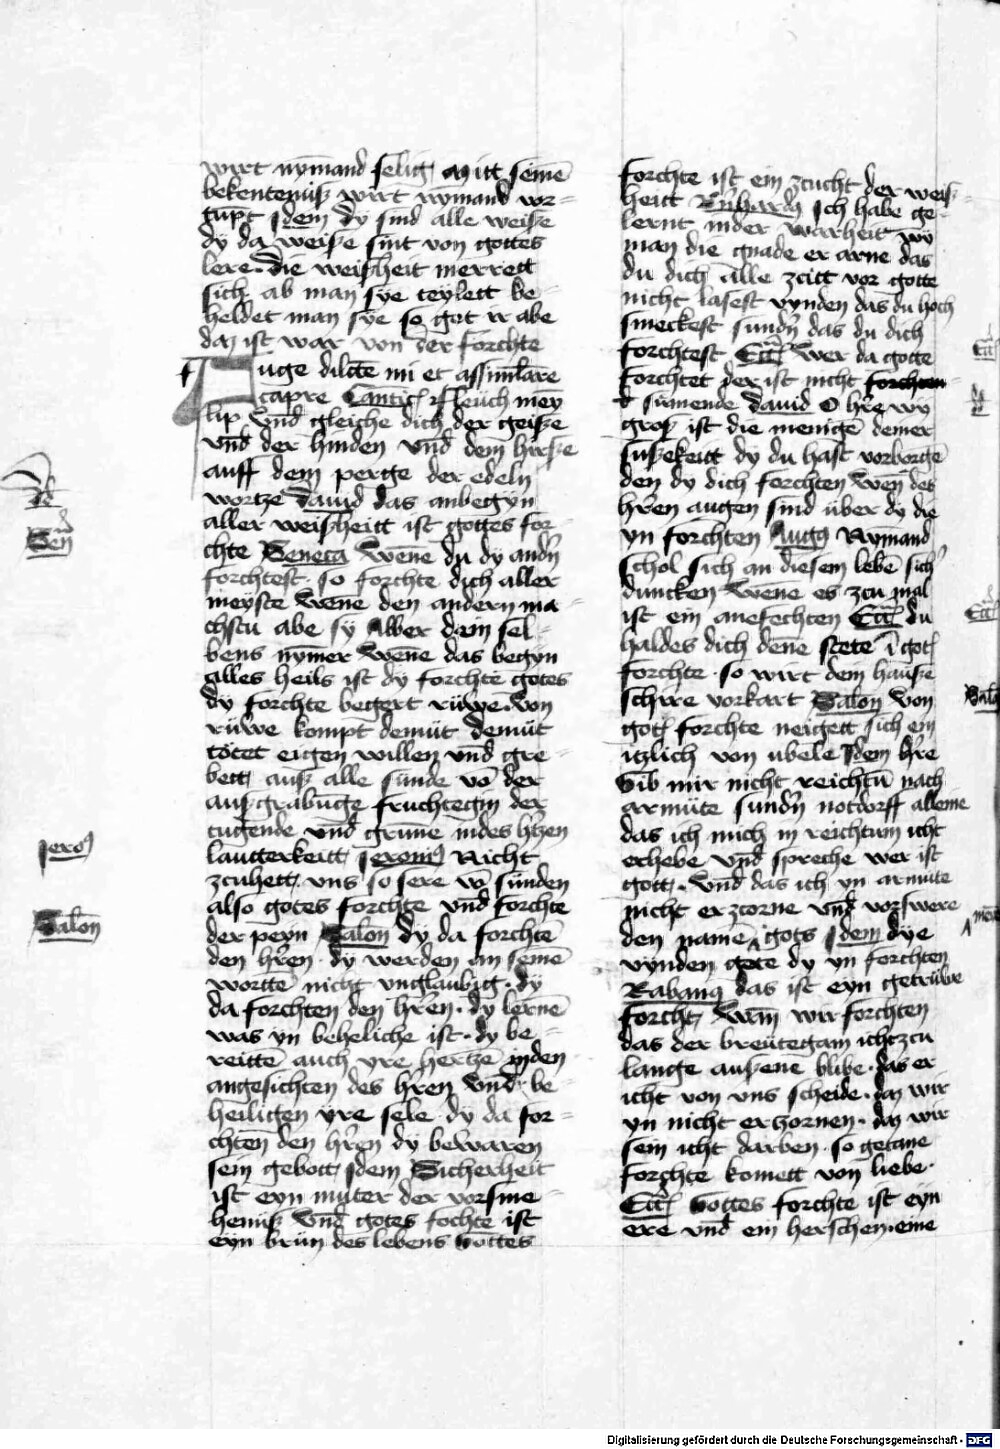 wirt nymand selig Mitt seinē
bekentenuß wirt nymand vor-
tupt Jdem dy sind alle weiße
dy da weiße sint von gottes
lere. die weißheit merrett
sich ab man sye teylett be-
heldet man sye so get er abe
daz ist war von der forchte
Fuge dilcte mi et assimlare
capre Cantic fleuch mey
lip vnd gleiche dich der geiße
vnd der hinden vnd dem hirße
auff dem perge der edeln
wortze Dauid das anbegyn
aller weißheitt ist gottes for-
chte Seneca Wēne du dy andn̄
forchtest. so forchte dich aller
meyste wene den andern ma-
chstu abe sy Aber dein sel-
bens nymer Wene das begyn
alles heils ist dy forchte gotes
dy forchte begert rüwe. von
rüwe kompt demüt demüt
tötet eigen willen vnd gre-
bett auß alle sunde vō der
außgrabunge fruchtegin der
tugende vnd grunē indes htzen
lautterkeitt Jeronig Nicht
zcuhett vns so sere vō sünden
also gotes forchte vnd forchte
der peyn Salon dy da forchtē
den hren. dy werden an seinē
wortte nicht vnglaubig. dy
da forchten den hren. dy lernē
was yn beheliche ist. dy be-
reittē auch yre hertzē inden
angesichten des hren vnd be-
heiligen yre sele dy da for-
chten den hren dy bewaren
sein gebott Jdem Sicherheit
ist eyn muter der vorsme-
henuß vnd gotes fochte ist
eyn brün des lebens Gottes
forchte ist ein zcucht der weiß-
heitt Bn̄hardg Jch habe ge-
lernt inder warheit wy
man die gnade er arne das
du dich alle zcitt vor gotte
nicht lasest vynden das du hoch
smeckest sundn̄ das du dich
forchtest Ecc wer da gotte
forchtet der ist nicht forchten
v̄sümende dauid O hre wy
groß ist die menige deiner
sußekeitt dy du hast vorborgē
den dy dich forchten wen des
hren augen sind über dy die
yn forchten Augg Nymand
schol sich an diesem lebē sich
duncken wene es zcu mal
ist ein anefechten Ecc du
haldes dich dene stete ī got
forchte. so wirt dein hauße
schire vorkart Salon von
got forchte neigett sich ein
itzlich von ubele Jdem hre
Gib mir nicht reichtū nach
armüte sundn̄ notdorff alleine
das ich mich in reichtum icht
erhebe vnd spreche wer ist
gott. vnd das ich yn armute
nicht erzcorne vnd vorswere
den namē gots Jdem dye
vynden gote dy yn forchten
Rabang das ist eyn getrübe
forcht Wen wir forchten
das der breutegam icht zcu
lange außenē blibe. das er
icht von vns scheide. daz wir
yn nicht erzornen. daz wir
sein icht darben. so getane
forchte komett von liebe.
Ecc Gottes forchte ist eyn
ere vnd ein herschen. eine
Sen
Jerog
Salon
Ecc
Ecc
Digitalisierung gefördert durch die Deutsche Forschungsgemeinschaft - DFG